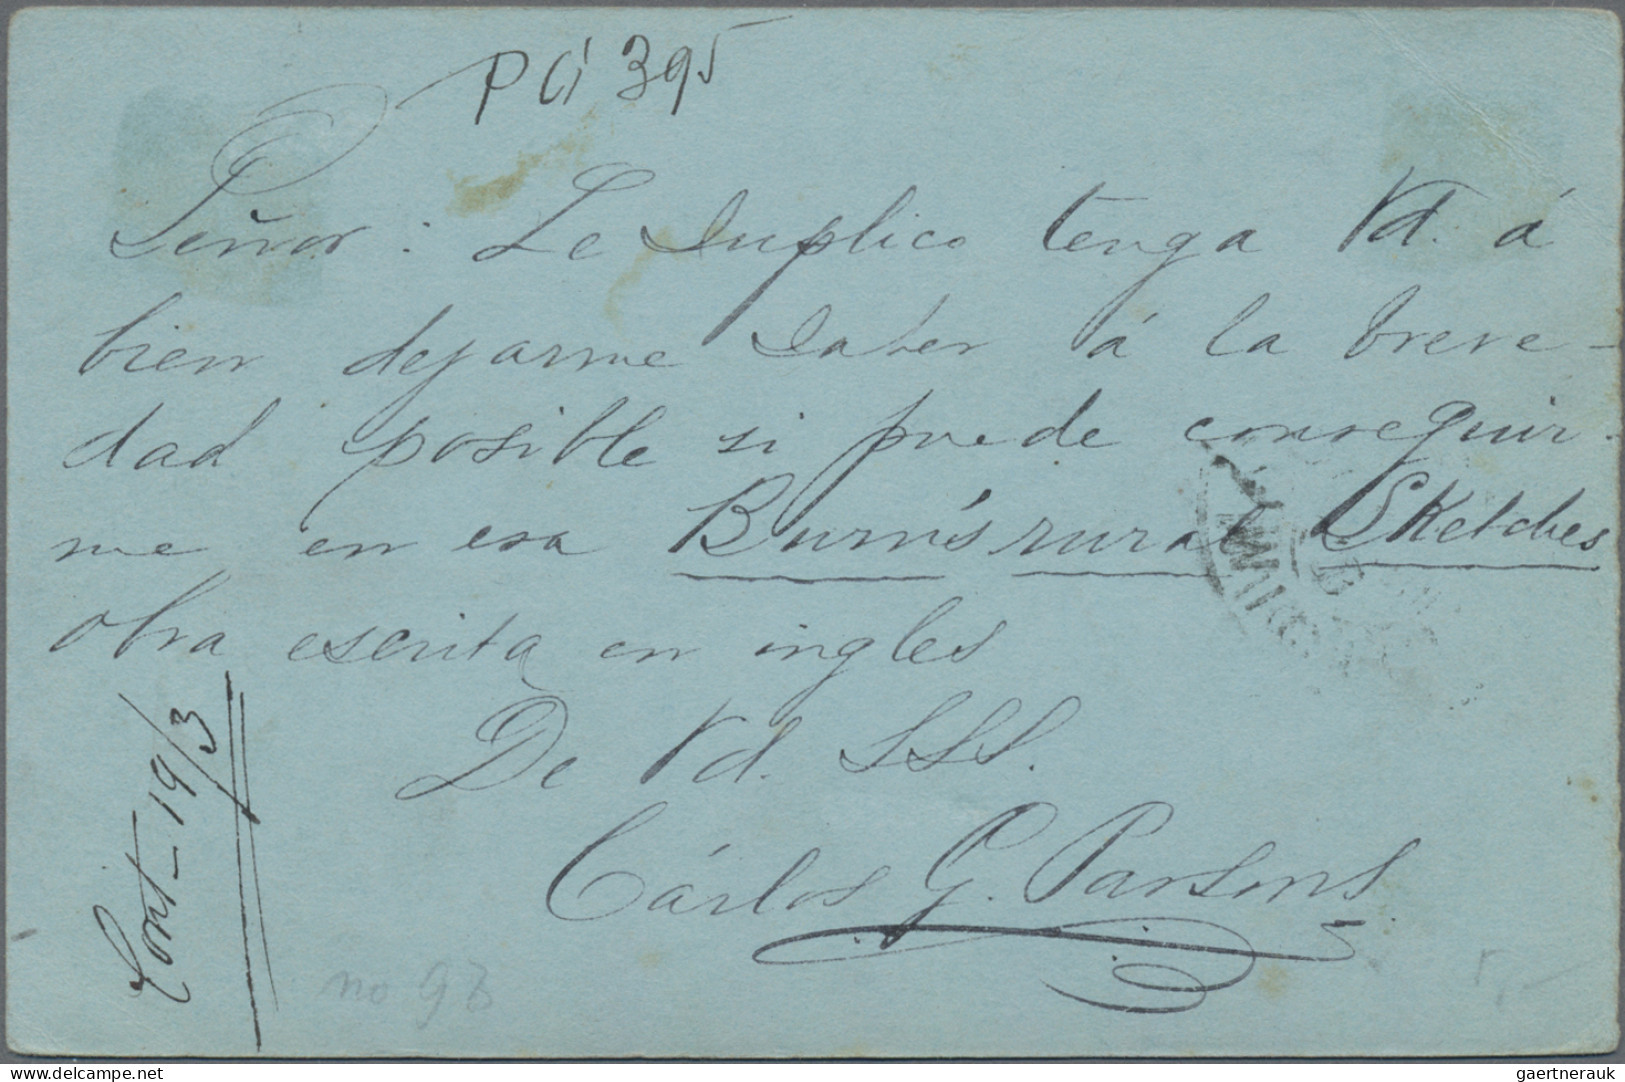 PCi 395
Señor: Le Suplico tenga Vd. á
bien dejarme saber á la breve-
dad posible si puede conseguir-
me en esa Burn's rural Sketches
obra escrita en ingles
De Vd. SSS.
Cárlos G. Parsons
Cont-19/3
no 98
www.delcampe.net
gaertnerauk